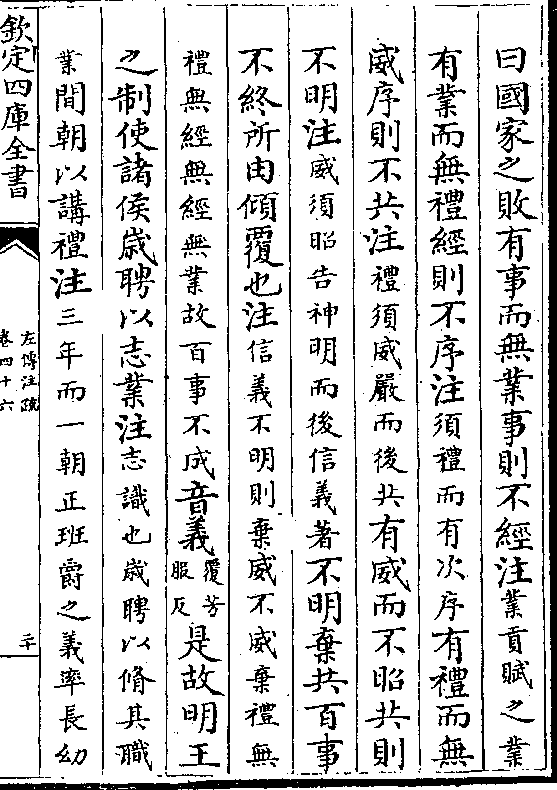 曰國家之敗有事而無業事則不經注業貢賦之業
有業而無禮經則不序注須禮而有次序有禮而無
威序則不共注禮須威嚴而後共有威而不昭共則
不明注威須昭告神明而後信義著不明棄共百事
不終所由傾覆也注信義不明則棄威不威棄禮無
禮無經無經無業故百事不成音義覆芳服反是故明王
之制使諸侯歲聘以志業注志識也歲聘以脩其職
業間朝以講禮注三年而一朝正班爵之義率長幼
欽定四庫全書
左傳注疏
卷四十六
二十